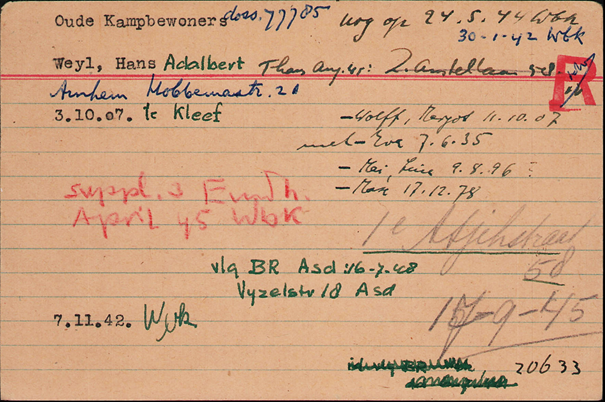 Oude Kampbewoners doss. 77785 nog op 24.5.44 Wbk
30-1-42 Wbk
Weyl, Hans Adalbert Thans Aug. 45: Z. Amstellaan
R
Arnhem Hobbemastr. 21
3.10.07. te Kleef
- Wolff, Margot 11.10.07
- Eva 7.6.35
- Mei, Lina 9.8.96
- Max 17.12.78
suppl. 3 Eindh.
April 45 Wbk
1e
58
vlg BR Asd: 16-7-48
Vyzelstr 18 Asd
17-9-45
7.11.42. Wbk
20633